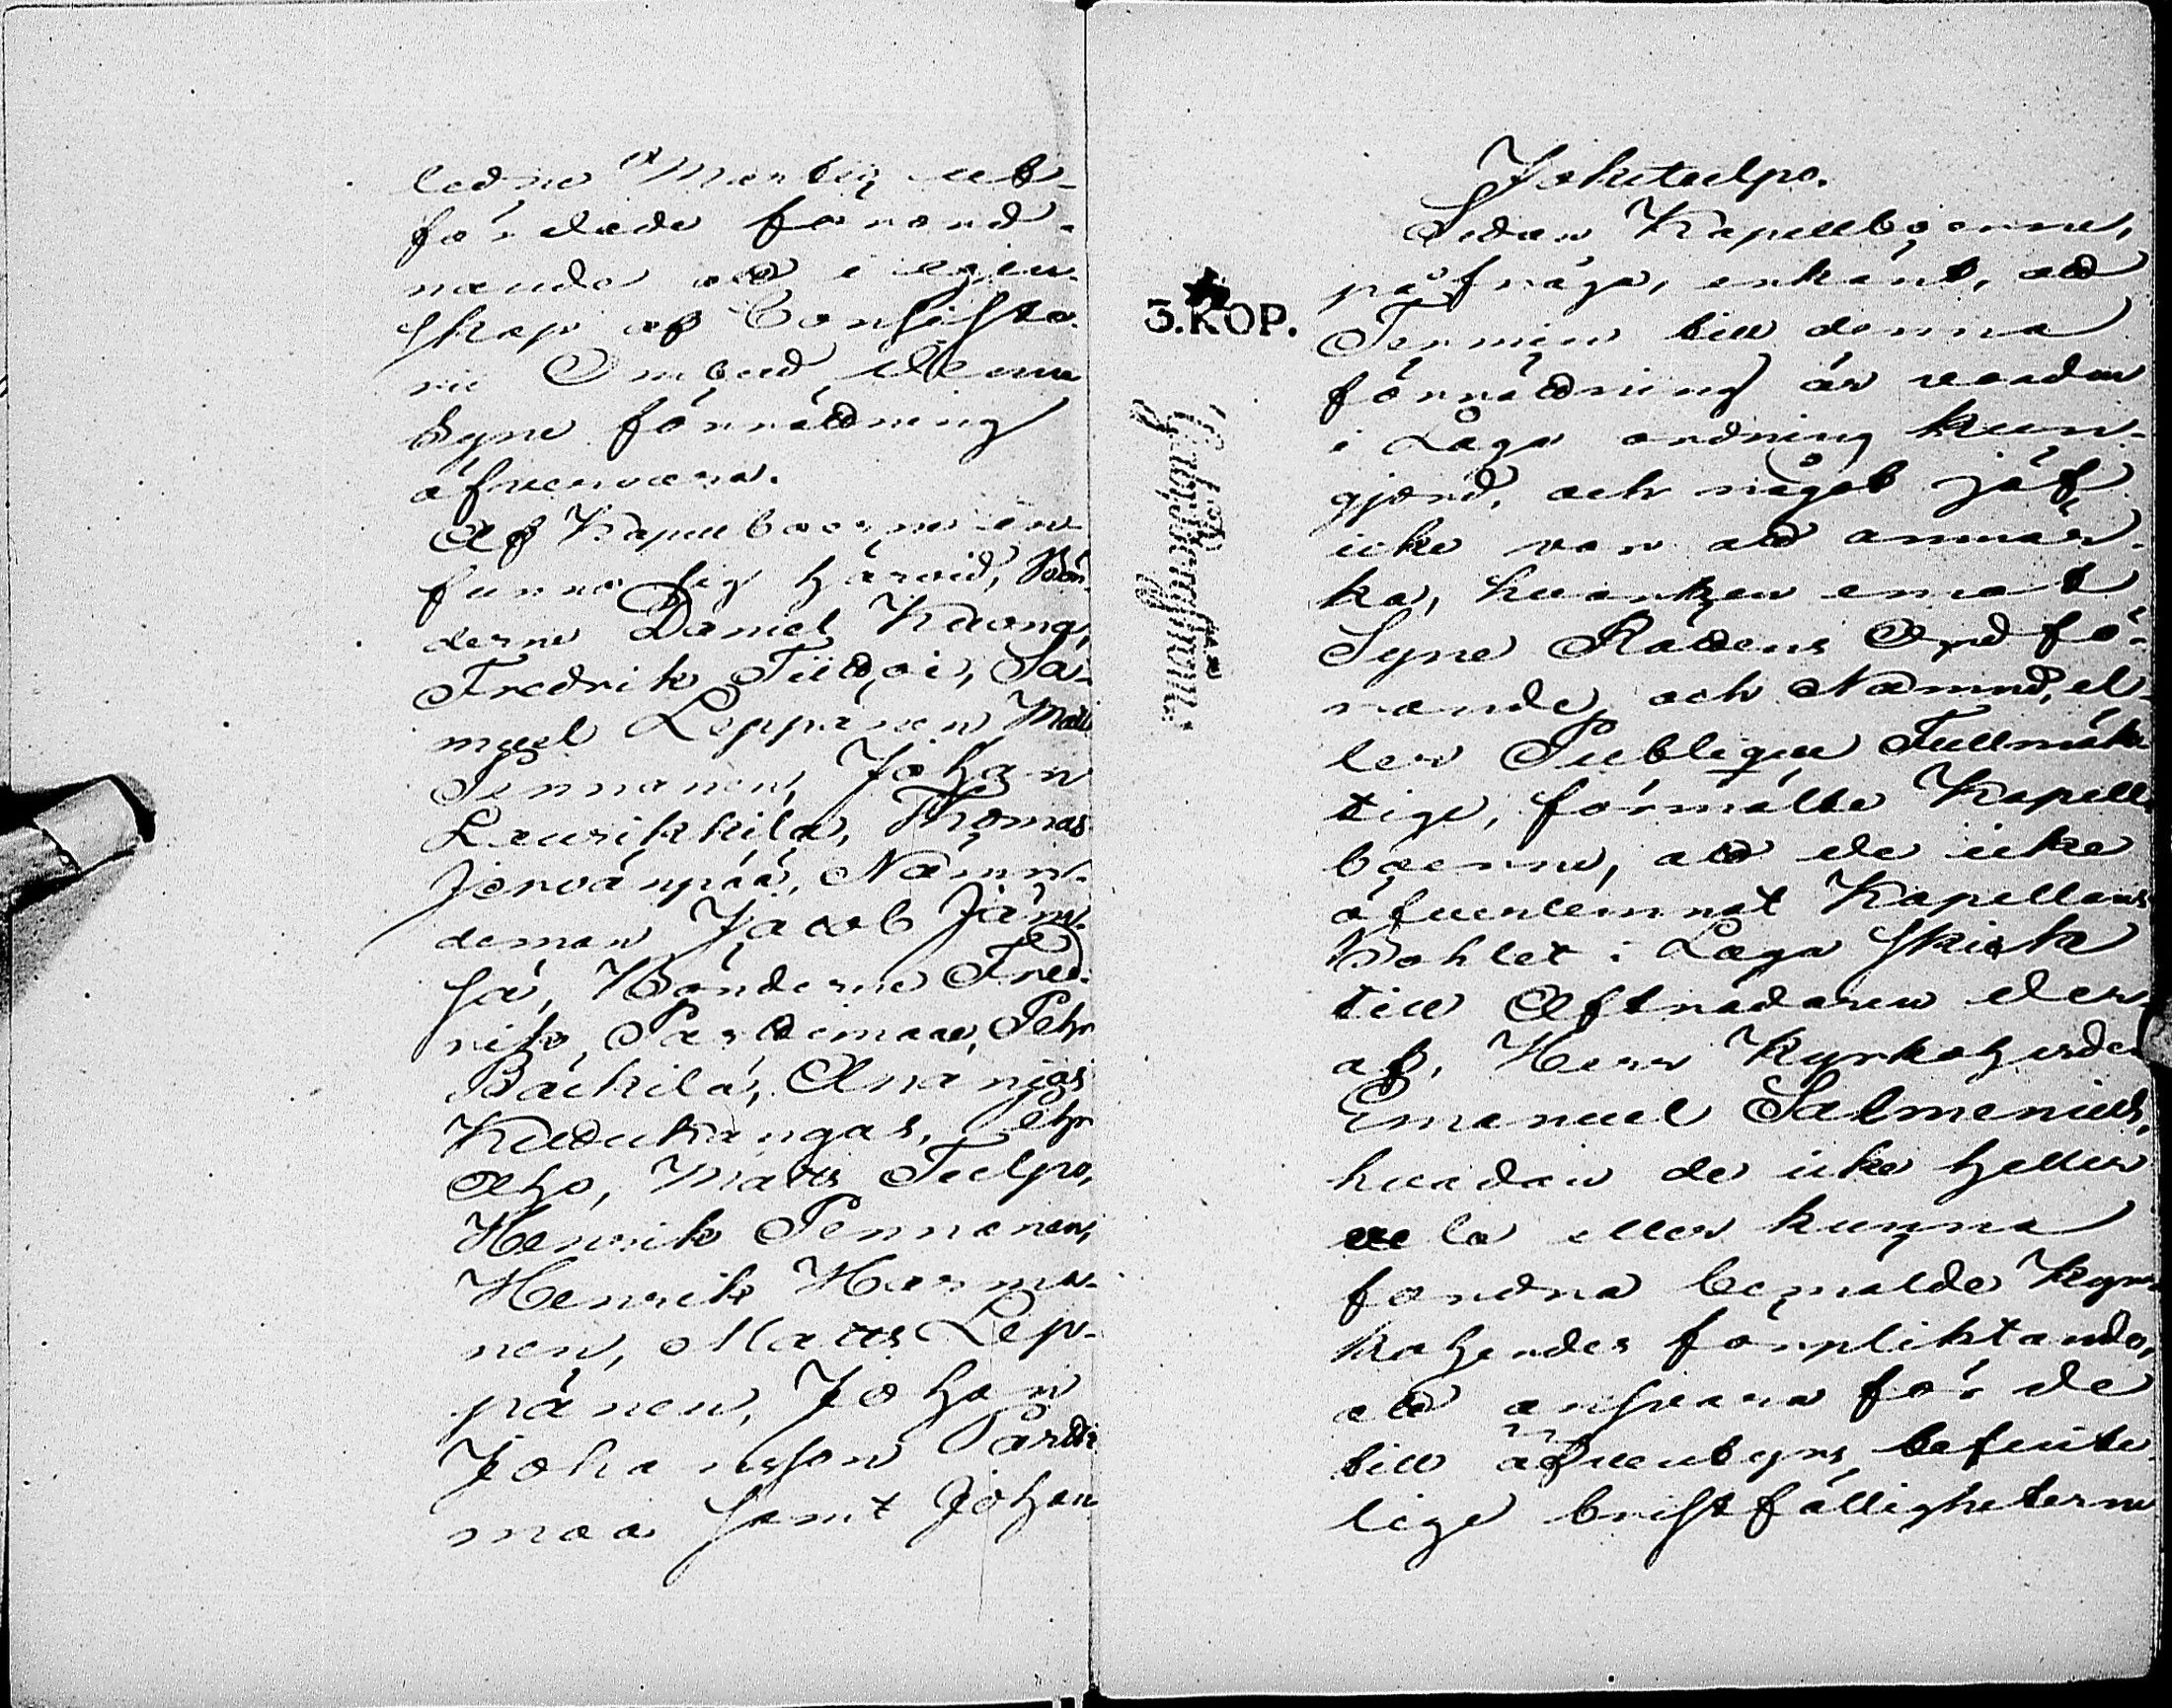 ledne Martii ut-
färdade förord-
nande att i egen-
skap af Consisto-
rii Ombud denne
Syne förrättning
öfvervara.
Af Kapellboerne in-
funno sig härvid, Bön-
derne Daniel
Fredrik Sa-
muel Leppänen Matts
Pennanen, Johan
Laurikkila, Thomas
Jervänpää, Nämn-
deman Jacob Jäm-
sä, Bönderne Fred-
rik Pardimaa, Pehr
Bäckilä, Ananjas
Kudukangas, Pehr
Aho, Matts Tulpo,
Henrik Pennanen,
Henrik Harma-
nen, Matts Lep-
pänen, Johan
Johansson Pardi-
maa samt Johan
Johutulpo.
Sedan Kapellboerne,
på fråga, erkänt, att
Termin till denna
förrättning är vorden
i Laga ordning kun-
gjord, och något jäf
icke var att anmär-
ka, hvarken emot
Syne Rättens Ordfö-
rande och Nämnd, el-
ler Publique Fullmäk-
tige, förmälte Kapell-
boerne, att de icke
öfverlemnat Kapellans
Bohlet i Laga skick
till Afträdaren der-
af, Herr Kyrkoherden
Emanuel Salmenius,
hvadan de icke heller
vela eller kunna
fordra bemälde Kyr-
koherdes förpliktande,
att ansvara för de
till äfventyrs befinte-
lige bristfälligheterne
3. KOP.